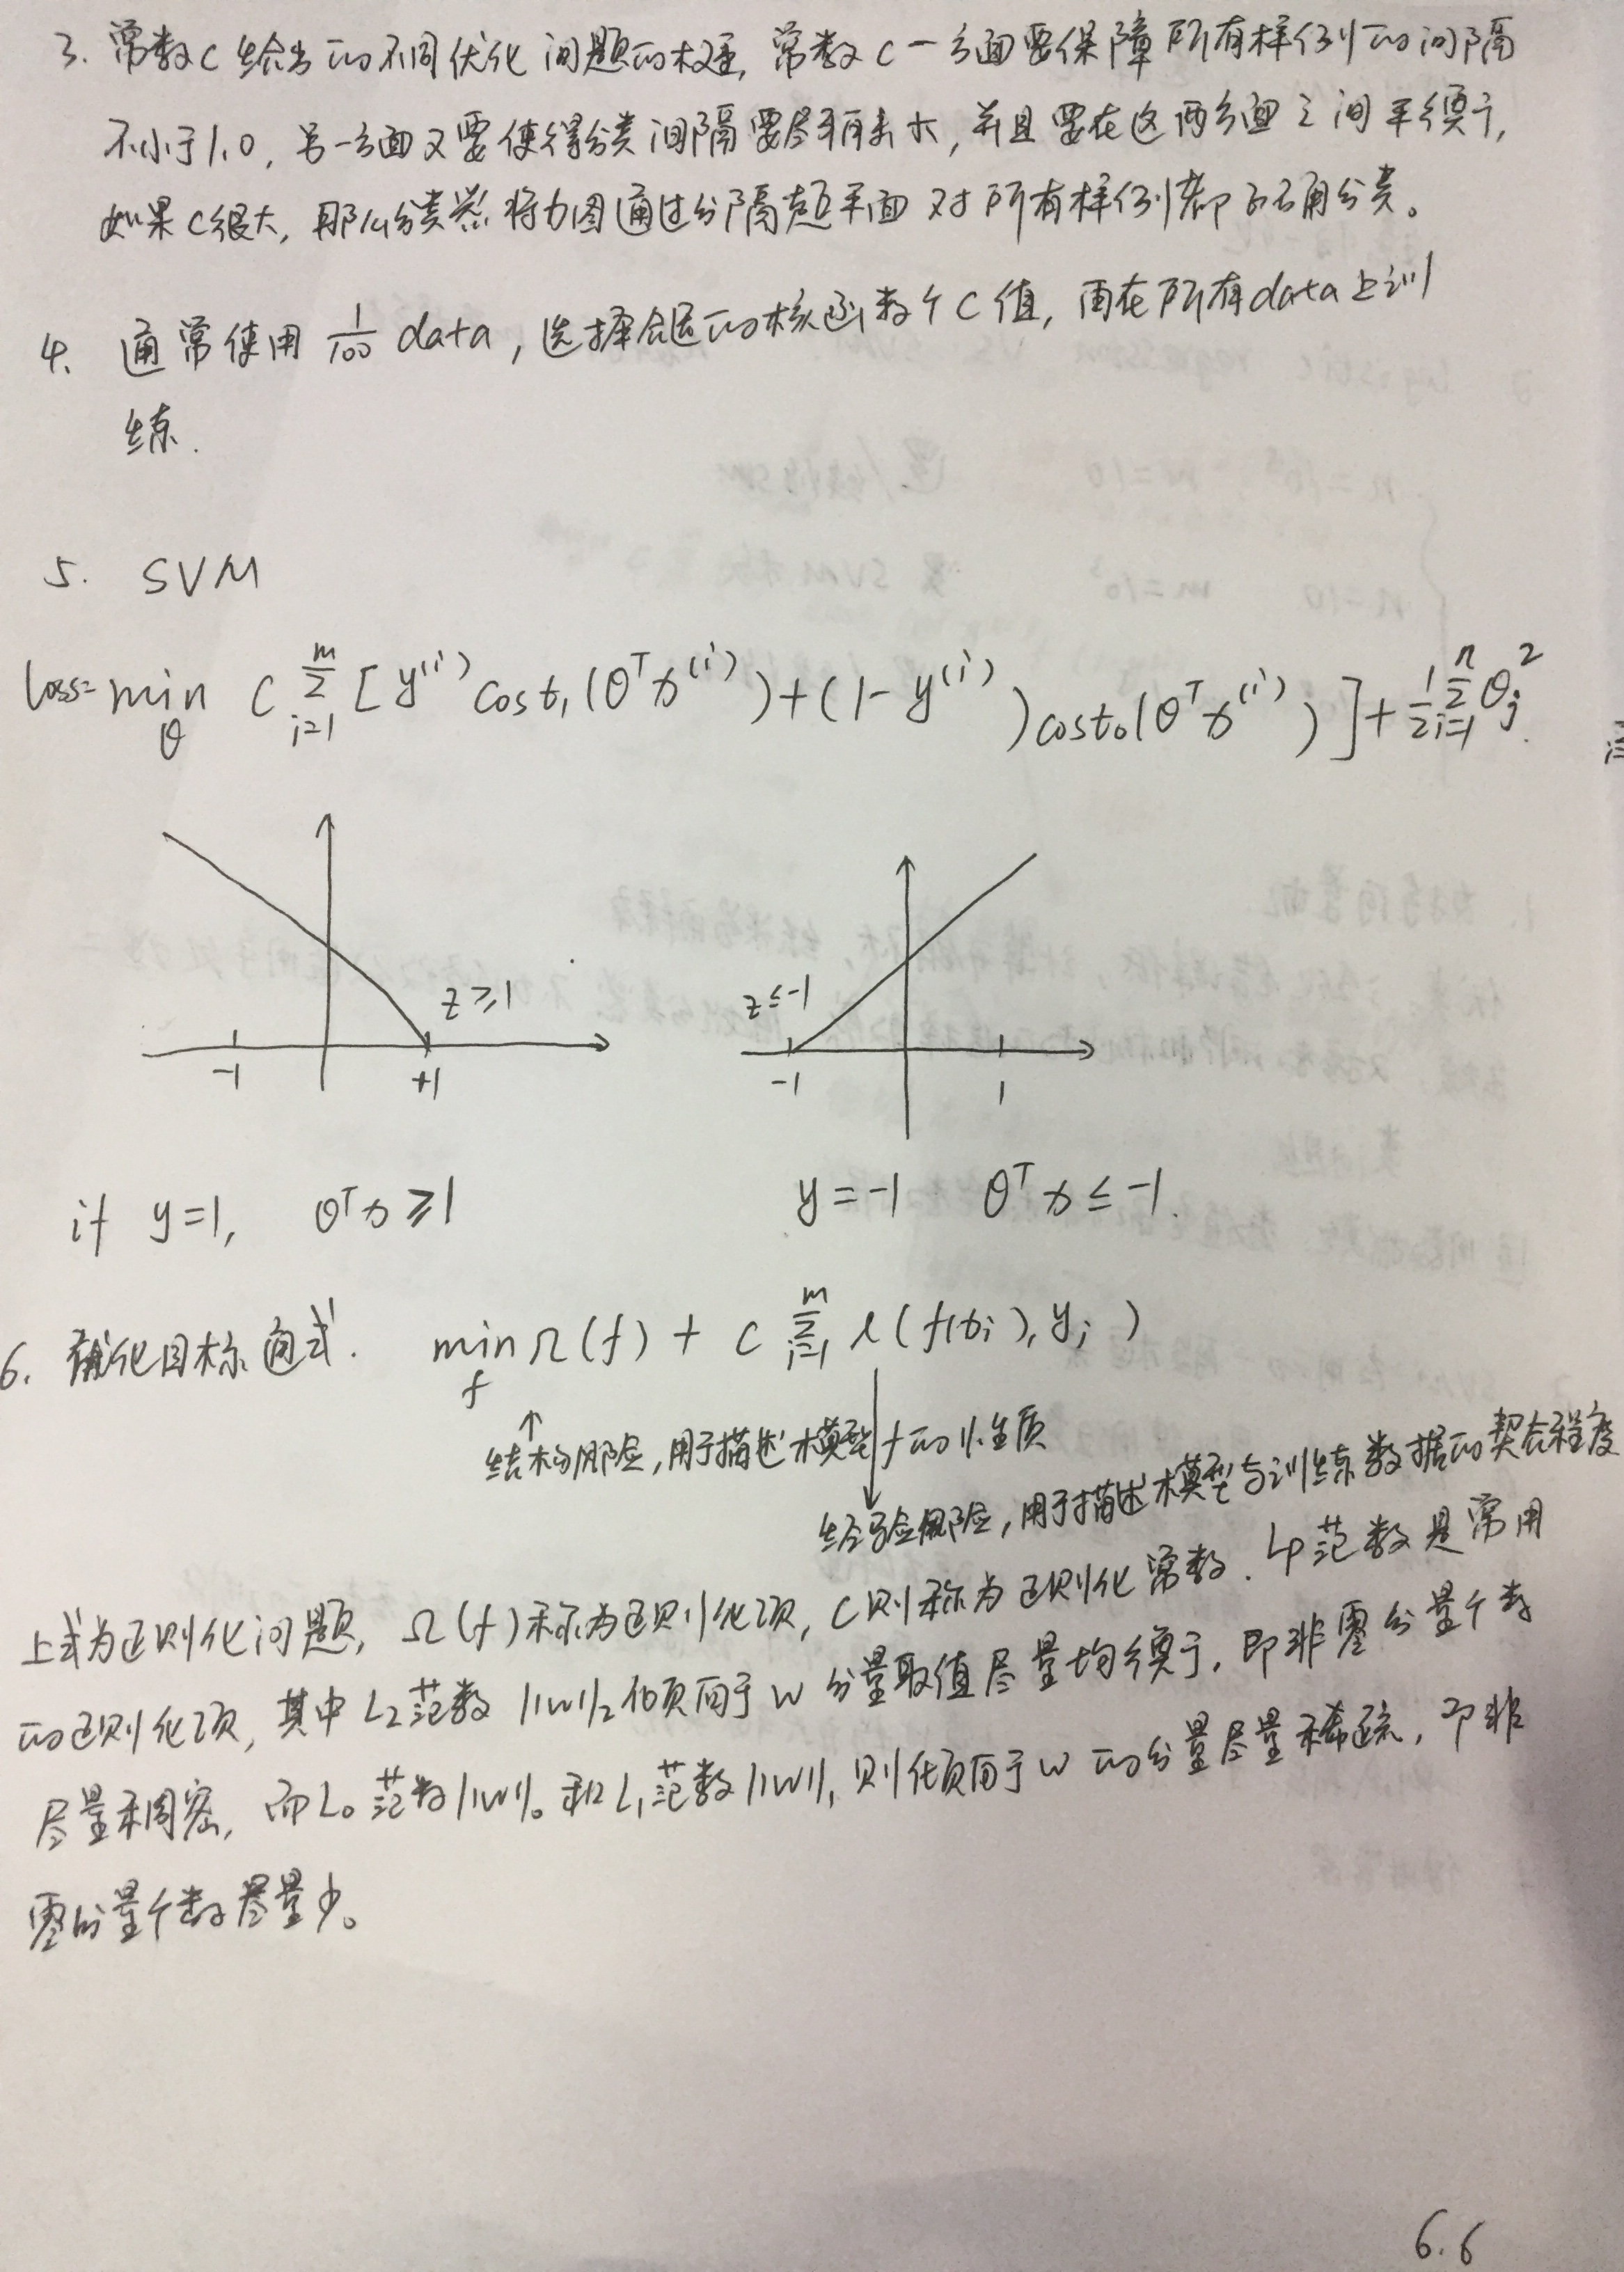 3. 常数C给出的不同优化问题的权重,常数C一方面要保障所有样例的间隔
不小于1.0,另一方面又要使得分类间隔要尽可能大,并且要在这两方面之间平衡,
如果C很大,那么分类器将力图通过分隔超平面对所有样例都正确分类。
4. 通常使用 1/100 data,选择合适的核函数个C值,再在所有data上训
练.
5. SVM
loss= min_θ C Σ_{i=1}^{m} [ y^(i) cost₁(θᵀx^(i)) + (1-y^(i)) cost₀(θᵀx^(i)) ] + 1/2 Σ_{i=1}^{n} θ_j²
z≥1 z≤-1
-1 +1 -1 1
if y=1, θᵀx≥1 y=-1 θᵀx≤-1.
6. 优化目标通式. min_f Ω(f) + C Σ_{i=1}^{m} l(f(x_i), y_i)
结构风险,用于描述模型f的性质
经验风险,用于描述模型与训练数据的契合程度
上式为正则化问题, Ω(f)称为正则化项, C则称为正则化常数. Lp范数是常用
的正则化项,其中L₂范数 ||w||₂倾向于w分量取值尽量均衡,即非零分量个数
尽量稠密,而L₀范数||w||₀和L₁范数||w||₁则倾向于w的分量尽量稀疏,即非
零分量个数尽量少。
6.6